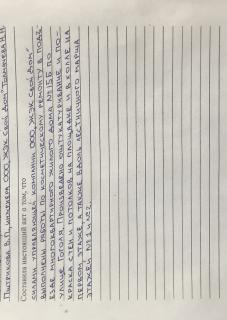 Пытрикова В.П., инженера ООО "ЖЭК Свой Дом" Толмачева Н.Н
Составила настоящий акт о том, что
силами управляющей компании ООО "ЖЭК Свой Дом"
выполнены работы по косметическому ремонту в подъ-
езде многоквартирного жилого дома №15Б по
улице Гоголя. Произведено оштукатуривание и по-
краска стен и потолков на площадке и в холле на
первом этаже а также вдоль лестничного марша
этажей №1 и №2.